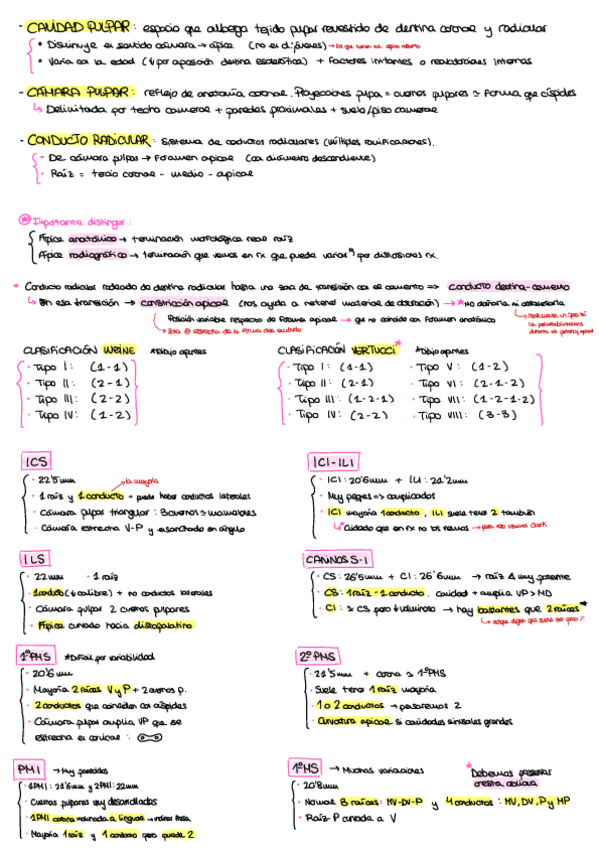 - CAVIDAD PULPAR: espacio que alberga tejido pulpar revestido de dentina coronal y radicular
• Disminuye en sentido cámara → ápice (no en dijóvenes) →
• Varía con la edad (↓ por aposición dentina esclerótica) + factores irritantes o reabsorciones internas
- CÁMARA PULPAR: reflejo de anatomía coronal. Proyecciones pulpa = cuernos pulpares ≈ forma que cúspides
↳ Delimitada por techo cameral + paredes proximales + suelo/piso cameral
- CONDUCTO RADICULAR: Sistema de conductos radiculares (múltiples ramificaciones).
- De cámara pulpar → foramen apical (con diámetro descendiente)
- Raíz = tercio coronal - medio - apical
Importante distinguir:
Ápice anatómico → terminación morfológica real raíz
Ápice radiográfico → terminación que vemos en rx que puede variar por distorsiones rx.
* Conducto radicular rodeado de dentina radicular hasta una zona de transición con el cemento => conducto dentina-cemento
↳ En esa transición → constricción apical (nos ayuda a retener material de obturación) → * No dañarla ni
Posición variable respecto de foramen apical → que no coincide con foramen anatómico
↳ Zona estrecha de la forma del
CLASIFICACIÓN WEINE *Dibujo apuntes
· Tipo I: (1-1)
· Tipo II: (2-1)
· Tipo III: (2-2)
· Tipo IV: (1-2)
CLASIFICACIÓN VERTUCCI* *Dibujo apuntes
· Tipo I: (1-1) · Tipo V: (1-2)
· Tipo II: (2-1) · Tipo VI: (2-1-2)
· Tipo III: (1-2-1) · Tipo VII: (1-2-1-2)
· Tipo IV: (2-2) · Tipo VIII: (3-3)
ICS
· 22'5mm
la mayoría
· 1 raíz y 1 conducto + puede haber conductos laterales
· Cámara pulpar triangular: 3 cuernos ≈ mamelones
· Cámara estrecha V-P y ensanchado en cíngulo
ICI-ILI
· ICI: 20'6mm + ILI: 21'2mm
· Muy peques => complicados
· ICI mayoría 1 conducto, ILI suele tener 2 también
↳ *Cuidado que en rx no los vemos → para ello usamos Clark
ILS
· 22mm · 1 raíz
· 1 conducto (↓ calibre) + no conductos laterales
· Cámara pulpar 2 cuernos pulpares
· Ápice curvado hacia distopalatino
CANINOS S-I
· CS: 26'5mm + CI: 26'6mm → raíz Δ muy potente
· CS: 1 raíz - 1 conducto. Cavidad + amplia VP > MD
· CI: ≈ CS pero ↓ voluminoso → hay bastantes que 2 raíces*
↳ aunque digan que suele ser poco %
1ºPMS *Difícil por variabilidad
· 20'6mm
· Mayoría 2 raíces V y P + 2 cuernos p.
· 2 conductos que coinciden con cúspides
· Cámara pulpar amplia VP que se
estrecha en cervical:
2ºPMS
· 21'5mm + corona ≈ 1ºPMS
· Suele tener 1 raíz mayoría
· 1 o 2 conductos → pensaremos 2
· Curvatura apical si cavidades sinusales grandes
PMI → Muy parecidos
· 1PMI: 21'6mm y 2PMI: 22mm
· Cuernos pulpares muy desarrollados
· 1PMI corona inclinada a lingual →
· Mayoría 1 raíz y 1 conducto pero puede 2
1ºMS → Muchas variaciones
* Debemos preservar
cresta oblicua
· 20'8mm
· Normal 3 raíces: MV-DV-P y 4 conductos: MV, DV, P y MP
· Raíz P curvada a V